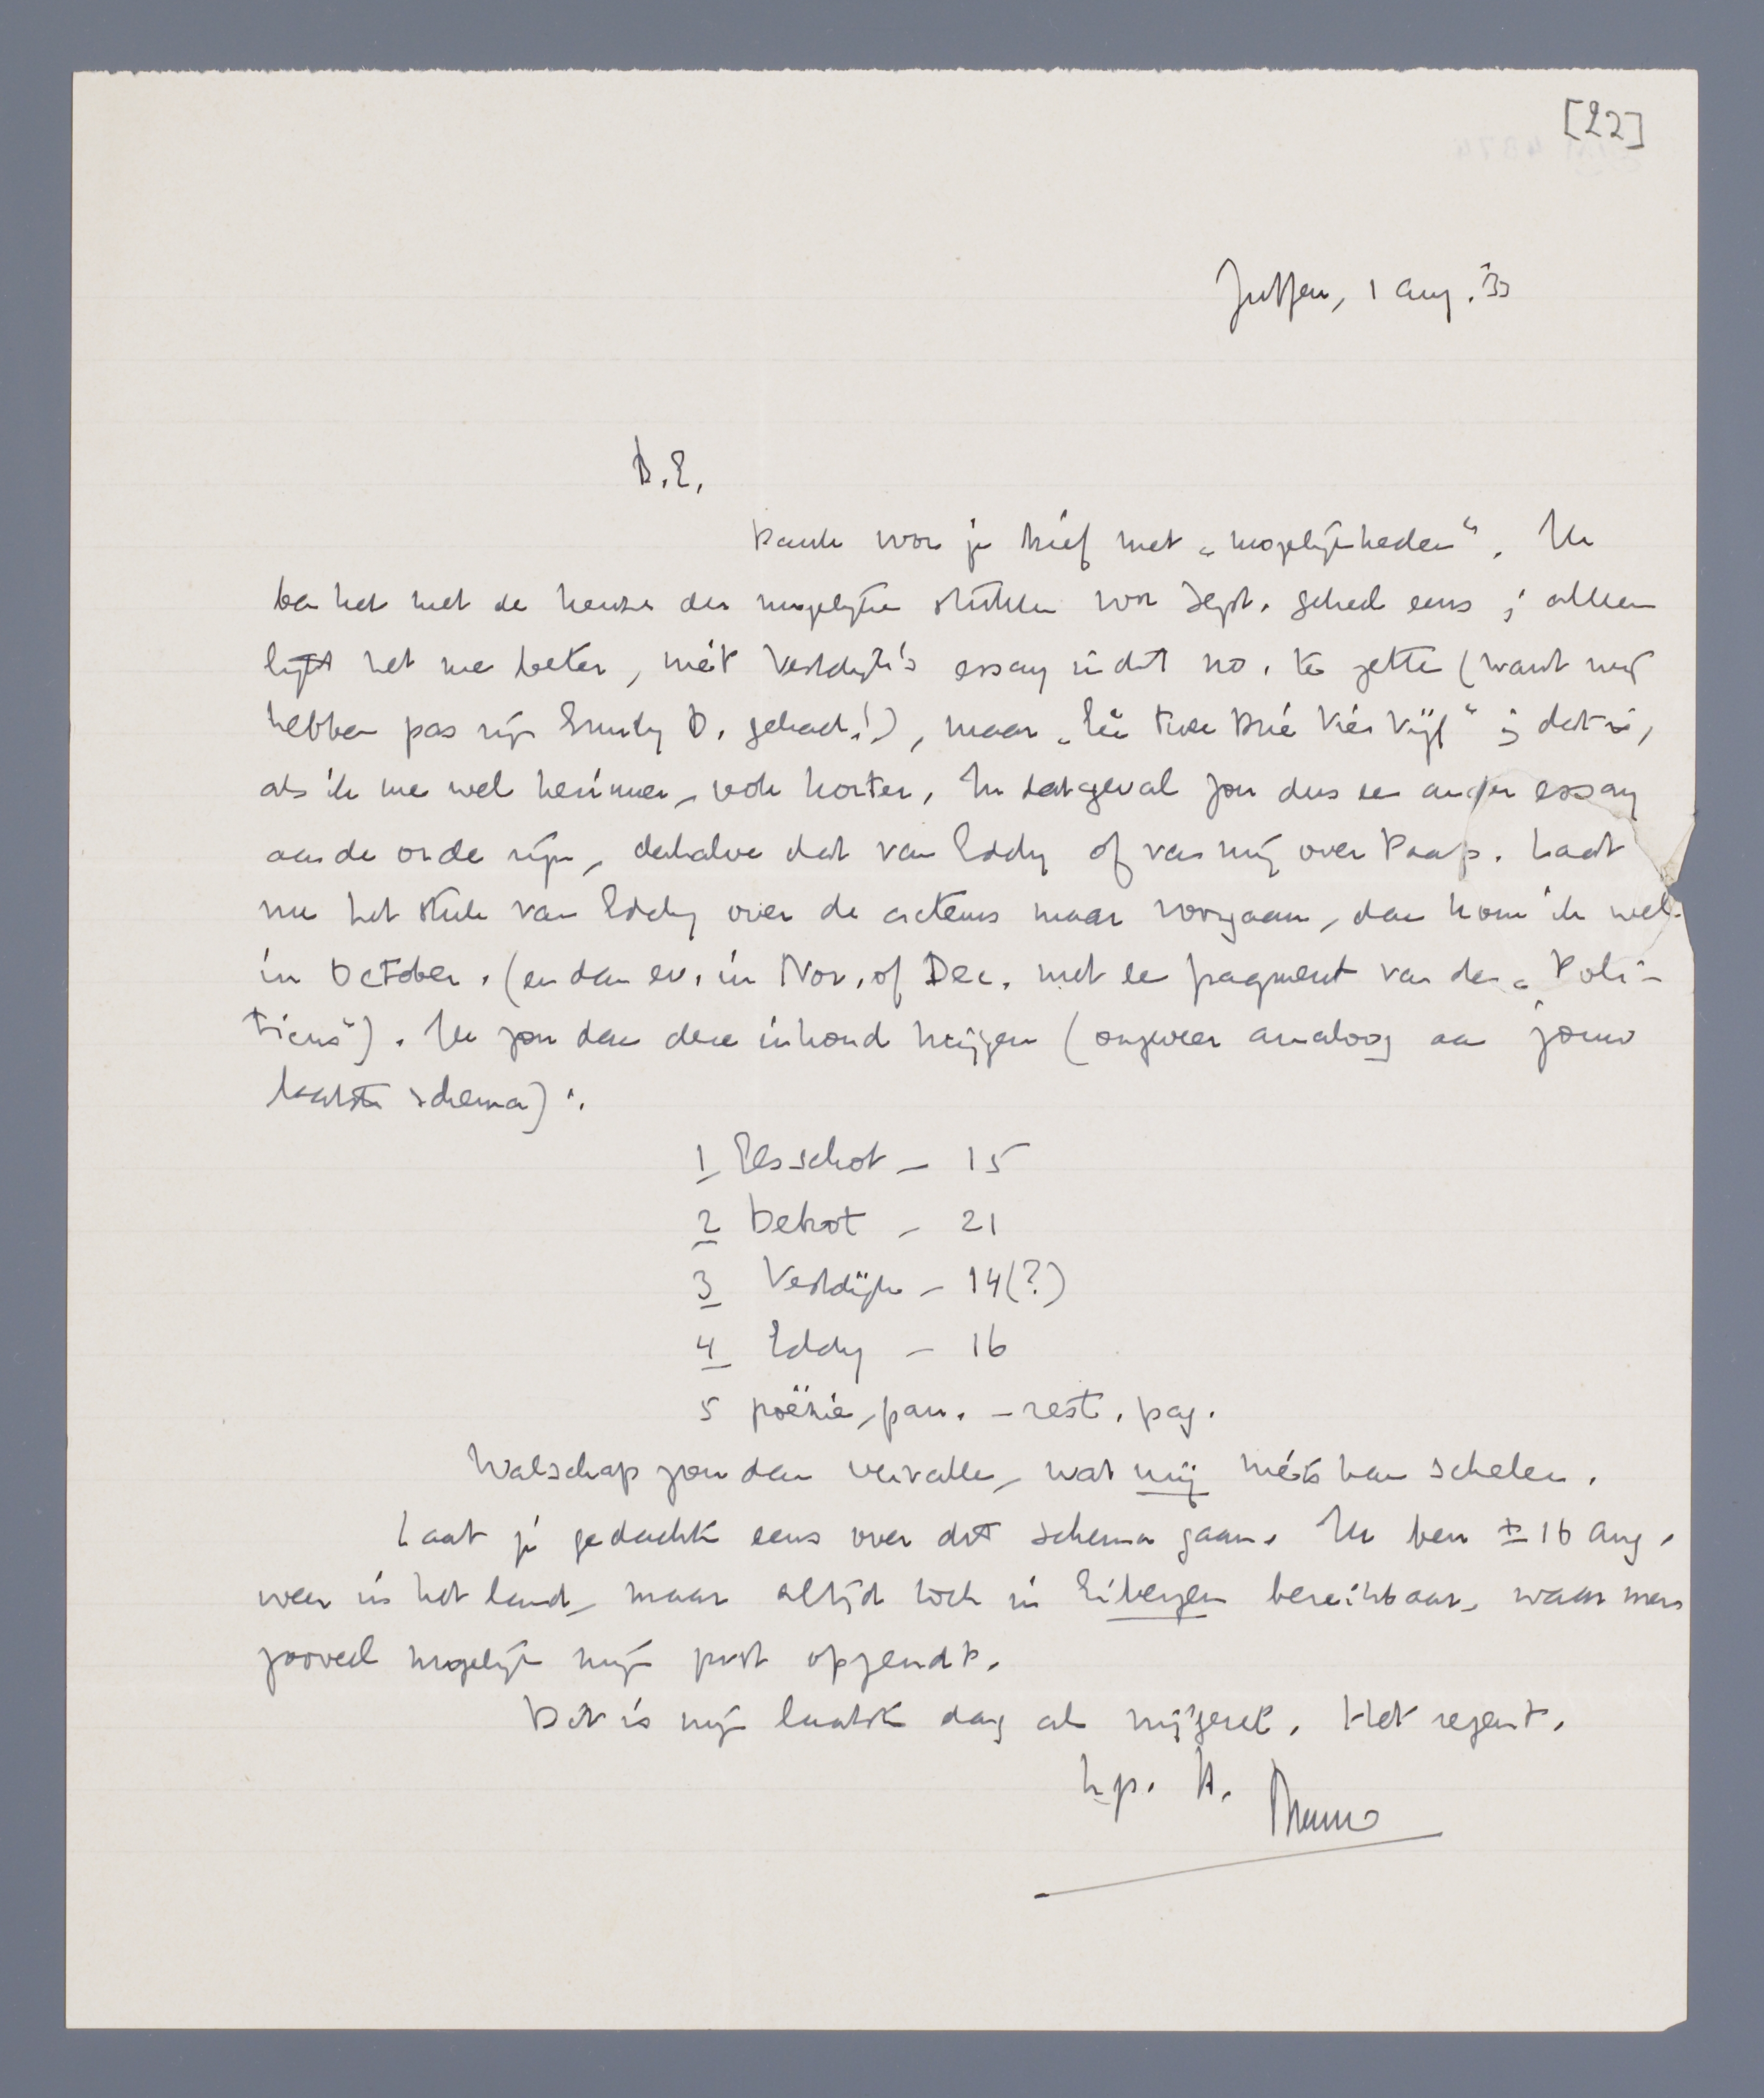 [22]
Zutfen, 1 Aug. '33
B.E.
Dank voor je brief met „mogelijkheden“. Ik
ben het met de keuze der mogelijke stukken voor Sept. geheel eens; alleen
lijkt het me beter, niét Vestdijk's essay in dit no. te zetten (want wij
hebben pas zijn Emily D. gehad!), maar „Eén Twee Drie Vier Vijf“; dat is,
als ik me wel herinner, ook korter. In dat geval zou dus een ander essay
aan de orde zijn, derhalve dat van Eddy of van mij over Paap. Laat
nu het stuk van Eddy over de acteurs maar voorgaan, dan kom ik wel
in October. (en dan ev. in Nov. of Dec. met een fragment van den „Poli-
ticus“). Ik zou dan deze inhoud krijgen (ongeveer analoog aan jouw
laatste schema):
1 Elsschot – 15
2 Debrot – 21
3 Vestdijk – 14(?)
4 Eddy – 16
5 poëzie, pan. – rest. pag.
Walschap zou dan vervallen, wat mij niets kan schelen.
Laat je gedachte eens over dit schema gaan. Ik ben ± 16 Aug.
weer in het land, maar altijd toch in Eibergen bereikbaar, waar men
zooveel mogelijk mijn post opzendt.
Dit is mijn laatste dag als vrijgezel. Het regent.
h.gr. tt.
Menno